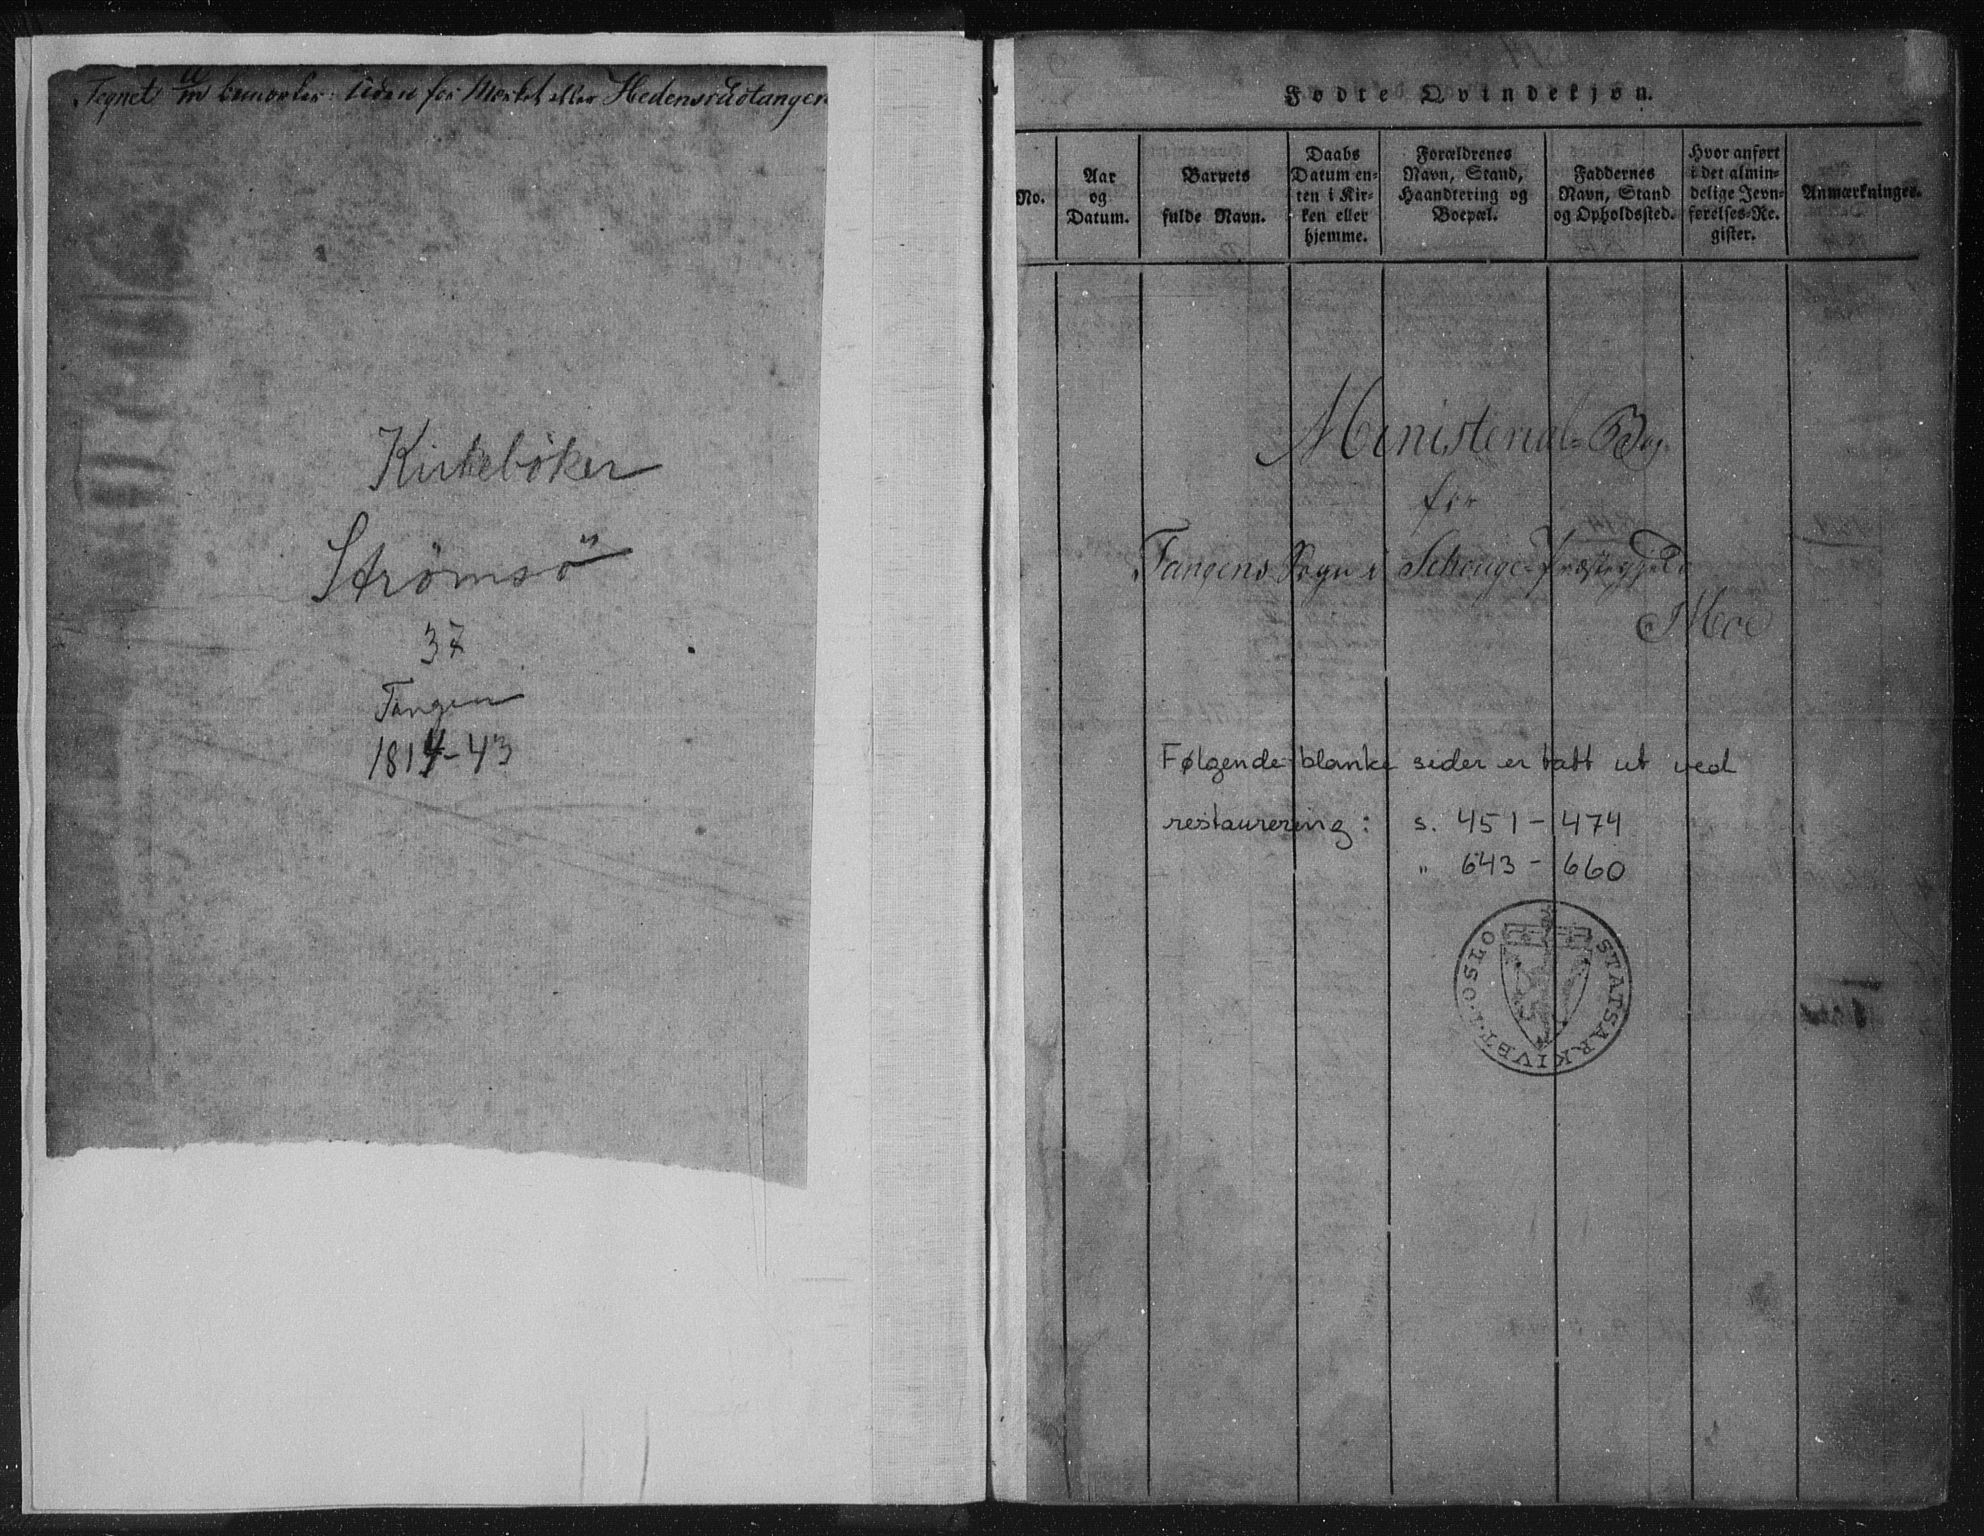 Tegnet u/m bemærker: uden for Mærket eller Hedensrudtangen
Kirkebøker
Strømsø
37
Tangen
1814-43
Fødte Qvindekjøn.
No.
Aar
og
Datum.
Barnets
fulde Navn.
Daabs
Datum en-
ten i Kir-
ken eller
hjemme.
Forældrenes
Navn, Stand,
Haandtering og
Boepæl.
Faddernes
Navn, Stand
og Opholdssted.
Hvor anført
i det almin-
delige Jevn-
førelses-Re-
gister.
Anmærkninger.
Ministerial-Bog
for
Tangens Sogn i Schouger Præstegjeld
Moe
Følgende blanke sider er tatt ut ved
restaurering: s. 451-474
" 643-660
STATSARKIVET·I·OSLO